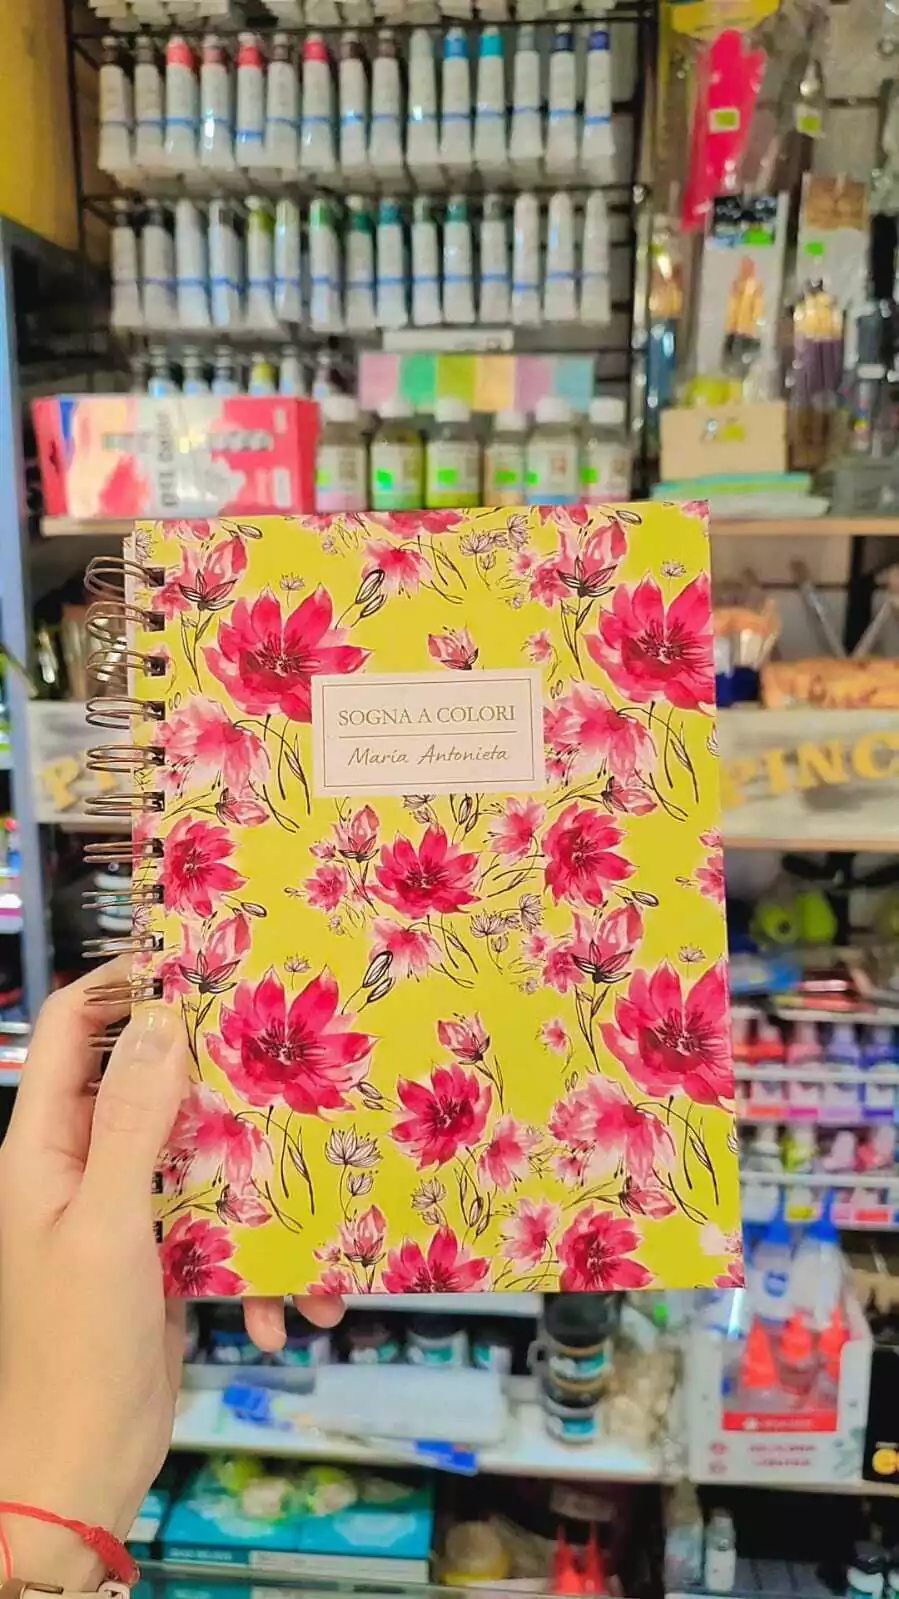 SOGNA A COLORI
María Antonieta
PINC